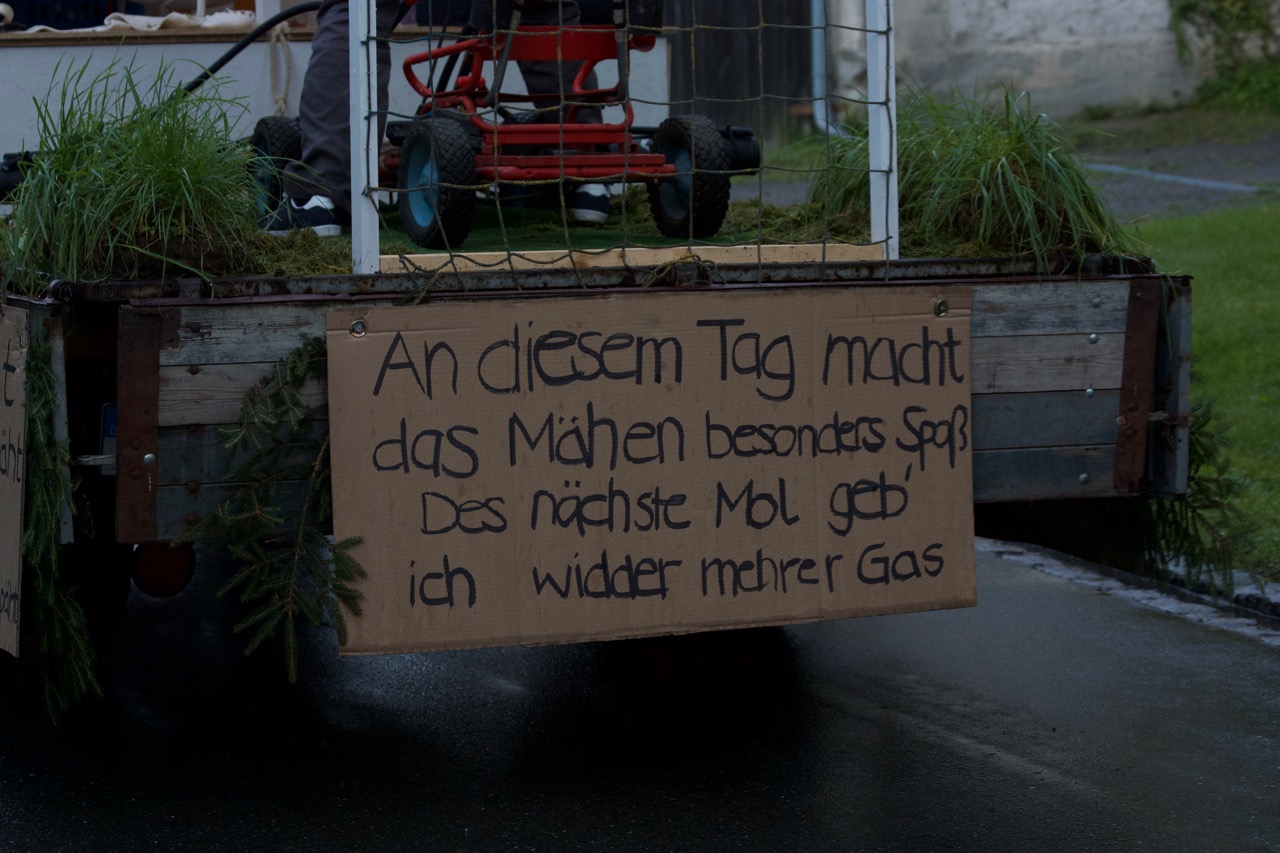 An diesem Tag macht
das Mähen besonders Spaß
Des nächste Mol geb'
ich widder mehrer Gas